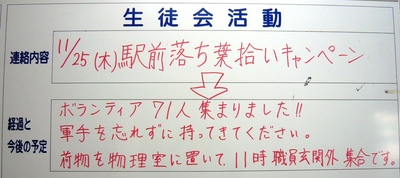 生徒会活動
連絡内容
11/25(木)駅前落ち葉拾いキャンペーン
経過と
今後の予定
ボランティア 71人 集まりました!!
軍手を忘れずに持ってきてください。
荷物を物理室に置いて 11時 職員玄関外 集合です。